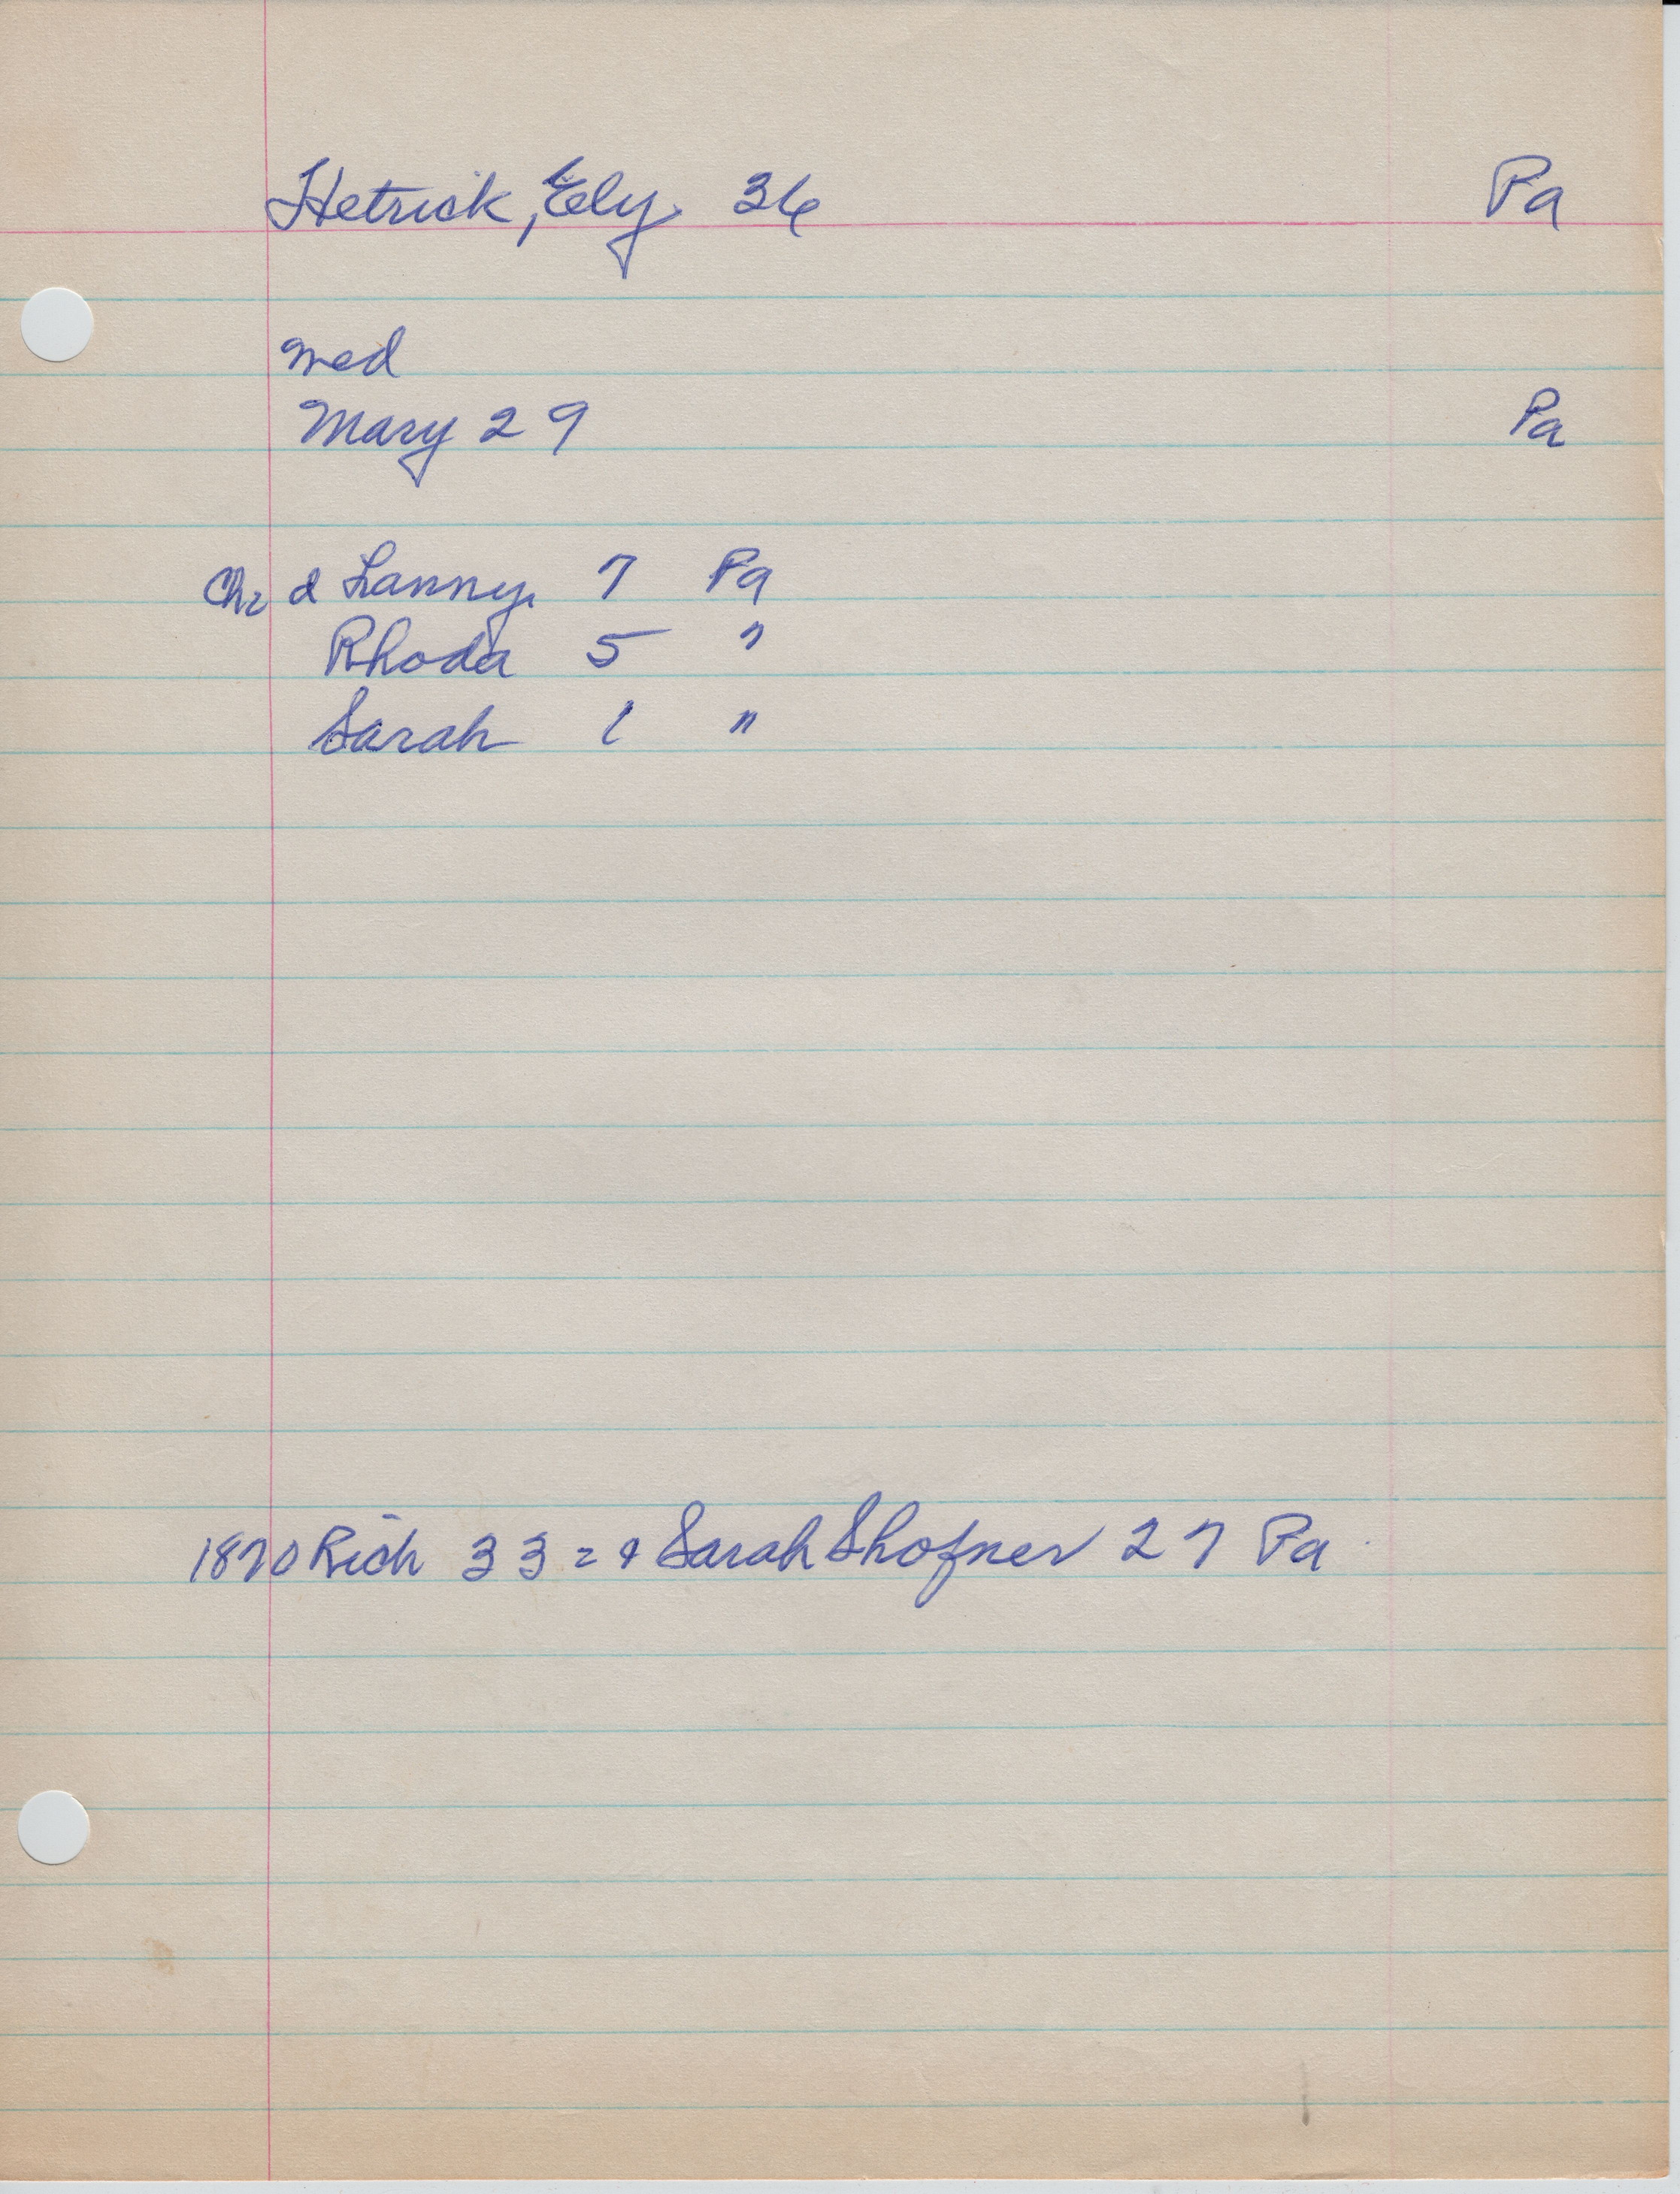 Hetrick, Ely 36 Pa
med
Mary 29 Pa
Ch2 d Lanny 7 Pa
Rhoda 5 "
Sarah 1 "
1870 Rich 33 = & Sarah Shofner 27 Pa